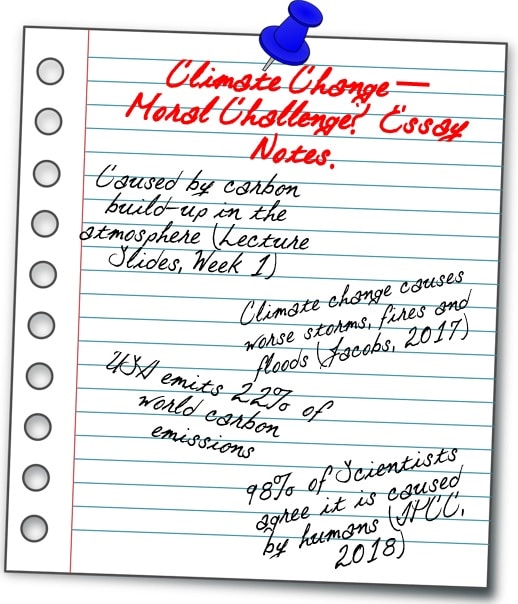 Climate Change —
Moral Challenge? Essay
Notes.
Caused by carbon
build-up in the
atmosphere (Lecture
Slides, Week 1)
Climate change causes
worse storms, fires and
floods (Jacobs, 2017)
USA emits 22% of
world carbon
emissions
98% of Scientists
agree it is caused
by humans (IPCC,
2018)